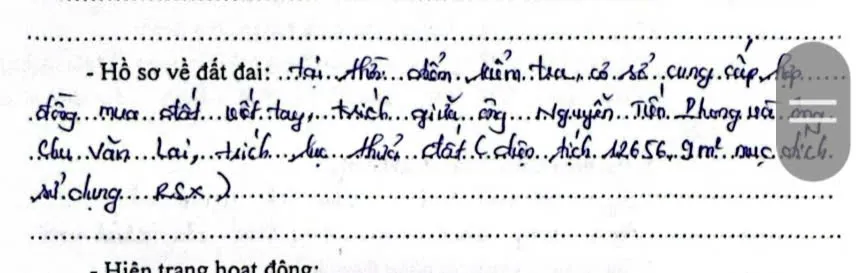 - Hồ sơ về đất đai: tại thời điểm kiểm tra, cơ sở cung cấp hợp
đồng mua đất viết tay, trích giữa ông Nguyễn Tiến Phong và ông
Chu Văn Lai, trích lục thửa đất (diện tích 12656,9m² mục đích
sử dụng RSX)
- Hiện trạng hoạt động: